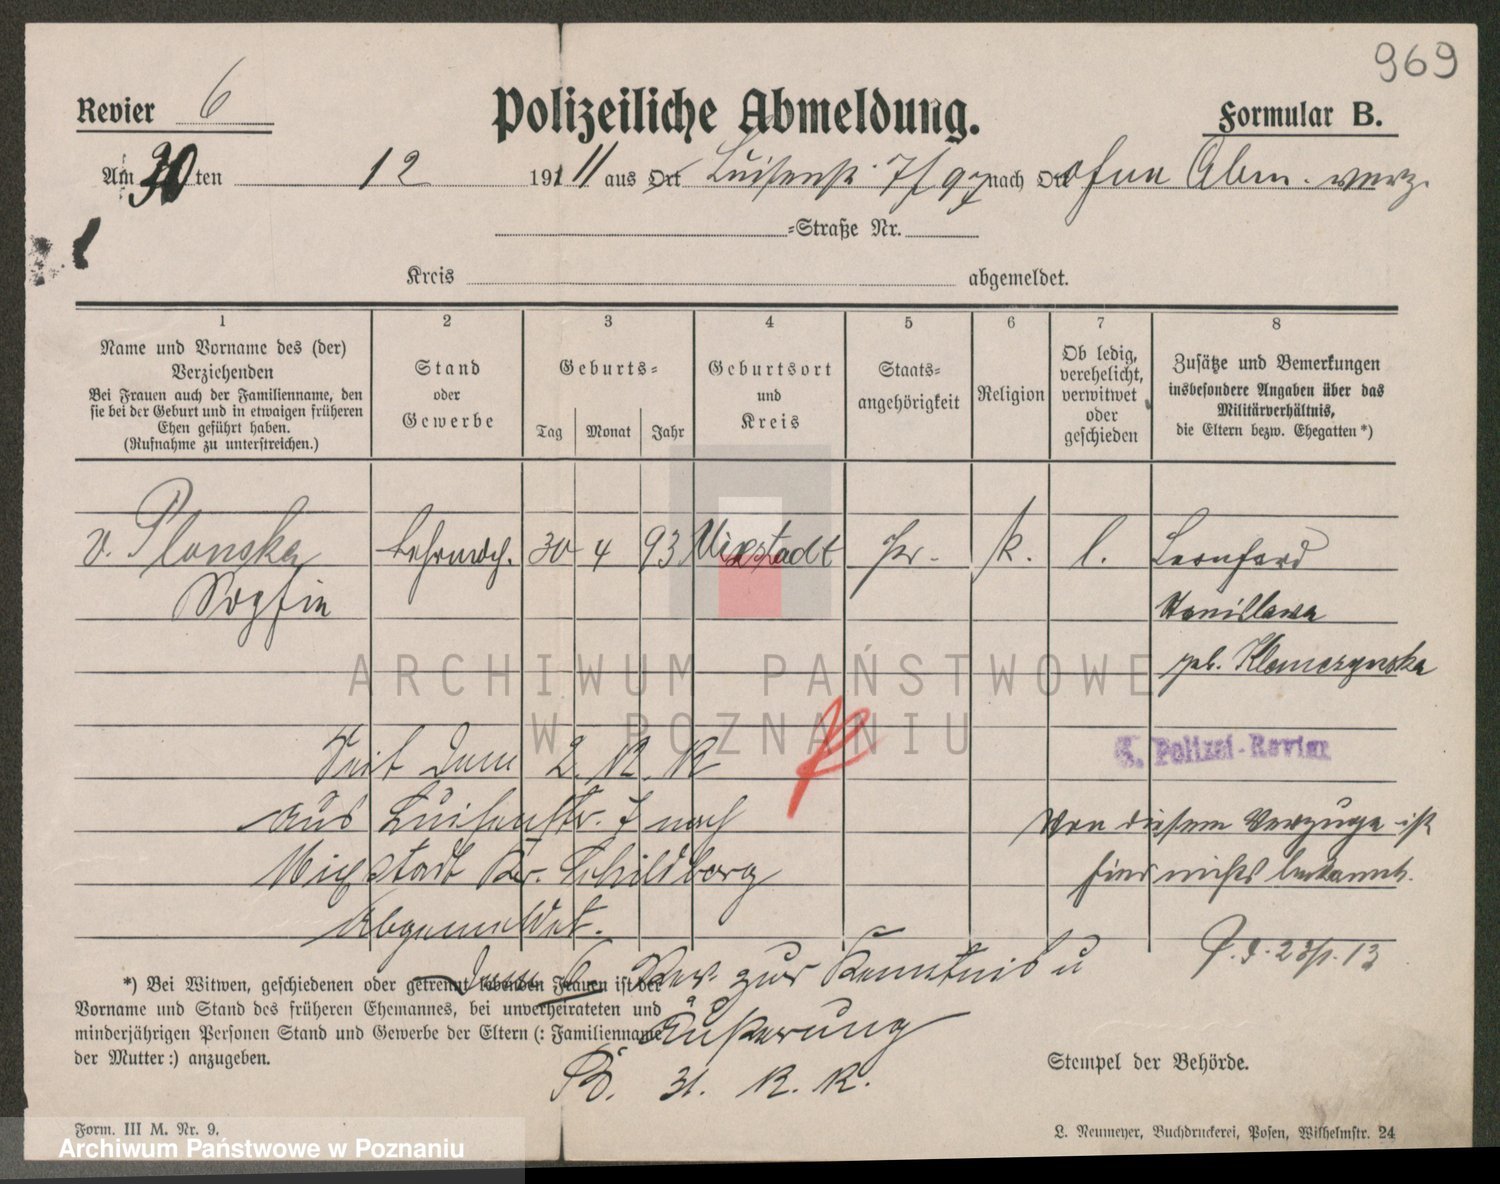 969
Revier 6
Polizeiliche Abmeldung.
Formular B.
Am 30 ten 12 1911 aus Ort Luisenstr. 7 nach Ort ohne Abm. verz.
=Straße Nr.
Kreis abgemeldet.
1 2 3 4 5 6 7 8
Name und Vorname des (der)
Verziehenden
Bei Frauen auch der Familienname, den
sie bei der Geburt und in etwaigen früheren
Ehen geführt haben.
(Rufnahme zu unterstreichen.)
Stand
oder
Gewerbe
Geburts=
Tag Monat Jahr
Geburtsort
und
Kreis
Staats=
angehörigkeit
Religion
Ob ledig,
verehelicht,
verwitwet
oder
geschieden
Zusätze und Bemerkungen
insbesondere Angaben über das
Militärverhältnis,
die Eltern bezw. Ehegatten*)
v. Plonska 30 4 93 Mixstadt pr. k. l. Leonhard
Sophie Stanislawa
geb. Klomczynska
ARCHIWUM PAŃSTWOWE
W POZNANIU
Seit dem 2. 12. 12
6. Polizei-Revier
aus Luisenstr. 7 nach
Von diesem Verzuge ist
Mixstadt Kr. Schildberg
hier nichts bekannt.
abgemeldet.
Dem 6. Rev. zur Kenntnis u
Äußerung
P. 31. 12. 12.
*) Bei Witwen, geschiedenen oder getrennt lebenden Frauen ist der
Vorname und Stand des früheren Ehemannes, bei unverheirateten und
minderjährigen Personen Stand und Gewerbe der Eltern (: Familienname
der Mutter :) anzugeben.
Stempel der Behörde.
Form. III M. Nr. 9.
L. Neumeyer, Buchdruckerei, Posen, Wilhelmstr. 24
Archiwum Państwowe w Poznaniu